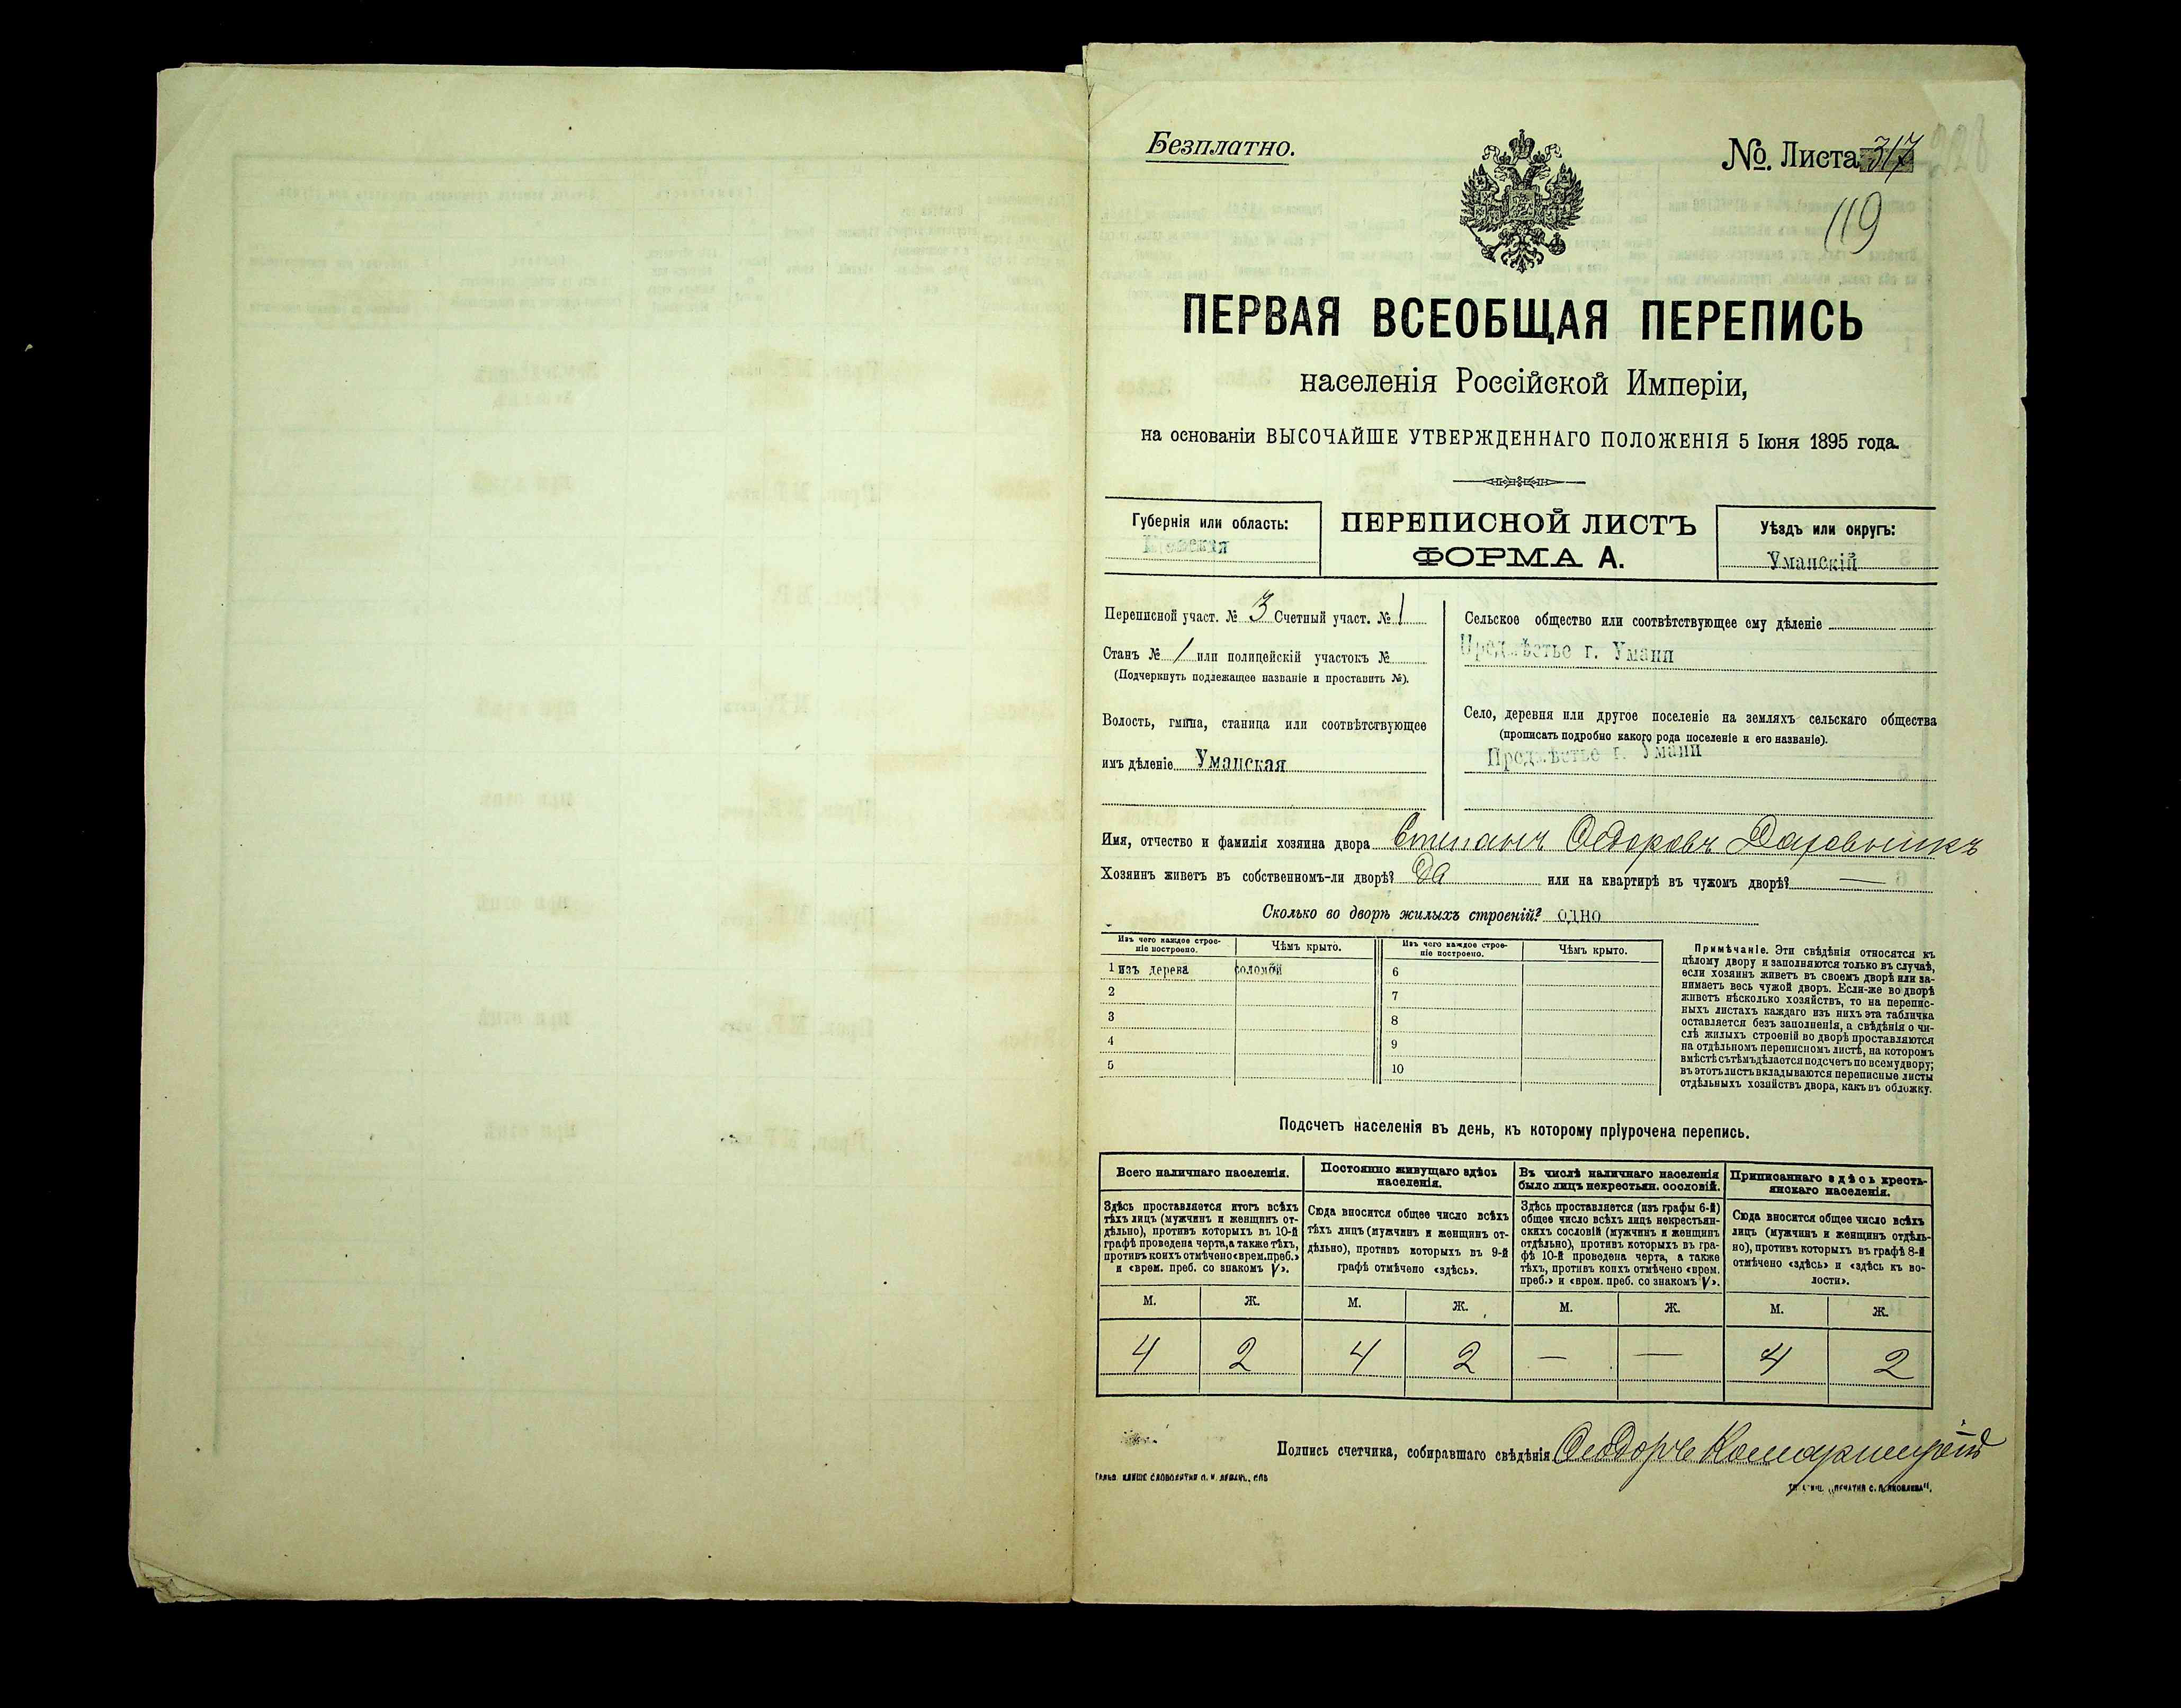 Безплатно.
№ Листа 317
119
ПЕРВАЯ ВСЕОБЩАЯ ПЕРЕПИСЬ
населенія Россійской Имперіи,
на основаніи ВЫСОЧАЙШЕ УТВЕРЖДЕННАГО ПОЛОЖЕНІЯ 5 Іюня 1895 года.
Губернія или область:
ПЕРЕПИСНОЙ ЛИСТЪ
ФОРМА А.
Уѣздъ или округъ:
Уманскій
Переписной участ. № 3 Счетный участ. № 1
Станъ № 1 или полицейскій участокъ №
(Подчеркнуть подлежащее названіе и проставить №).
Волость, гмина, станица или соотвѣтствующее
имъ дѣленіе Уманская
Сельское общество или соотвѣтствующее ему дѣленіе
Предмѣстье г. Умани
Село, деревня или другое поселеніе на земляхъ сельскаго общества
(прописать подробно какого рода поселеніе и его названіе).
Предмѣстье г. Умани
Имя, отчество и фамилія хозяина двора Степанъ Ѳедоровъ
Хозяинъ живетъ въ собственномъ-ли дворѣ? Да или на квартирѣ въ чужомъ дворѣ? —
Сколько во дворѣ жилыхъ строеній? одно
Изъ чего каждое строе-
ніе построено.
Чѣмъ крыто.
Изъ чего каждое строе-
ніе построено.
Чѣмъ крыто.
1 изъ дерева соломой
2
3
4
5
6
7
8
9
10
Примѣчаніе. Эти свѣдѣнія относятся къ
цѣлому двору и заполняются только въ случаѣ,
если хозяинъ живетъ въ своемъ дворѣ или за-
нимаетъ весь чужой дворъ. Если-же во дворѣ
живетъ нѣсколько хозяйствъ, то на перепис-
ныхъ листахъ каждаго изъ нихъ эта табличка
оставляется безъ заполненія, а свѣдѣнія о чи-
слѣ жилыхъ строеній во дворѣ проставляются
на отдѣльномъ переписномъ листѣ, на которомъ
вмѣстѣ съ тѣмъ дѣлается подсчетъ по всему двору;
въ этотъ листъ вкладываются переписные листы
отдѣльныхъ хозяйствъ двора, какъ въ обложку.
Подсчетъ населенія въ день, къ которому пріурочена перепись.
Всего наличнаго населенія.
Здѣсь проставляется итогъ всѣхъ
тѣхъ лицъ (мужчинъ и женщинъ от-
дѣльно), противъ которыхъ въ 10-й
графѣ проведена черта, а также тѣхъ,
противъ коихъ отмѣчено «врем. преб.»
и «врем. преб. со знакомъ V».
Постоянно живущаго здѣсь
населенія.
Сюда вносится общее число всѣхъ
тѣхъ лицъ (мужчинъ и женщинъ от-
дѣльно), противъ которыхъ въ 9-й
графѣ отмѣчено «здѣсь».
Въ числѣ наличнаго населенія
было лицъ некрестьян. сословій.
Здѣсь проставляется (изъ графы 6-й)
общее число всѣхъ лицъ некрестьян-
скихъ сословій (мужчинъ и женщинъ
отдѣльно), противъ которыхъ въ гра-
фѣ 10-й проведена черта, а также
тѣхъ, противъ коихъ отмѣчено «врем.
преб.» и «врем. преб. со знакомъ V».
Приписаннаго здѣсь кресть-
янскаго населенія.
Сюда вносится общее число всѣхъ
лицъ (мужчинъ и женщинъ отдѣль-
но), противъ которыхъ въ графѣ 8-й
отмѣчено «здѣсь» и «здѣсь къ во-
лости».
М. Ж. М. Ж. М. Ж. М. Ж.
4 2 4 2 — — 4 2
Подпись счетчика, собиравшаго свѣдѣнія